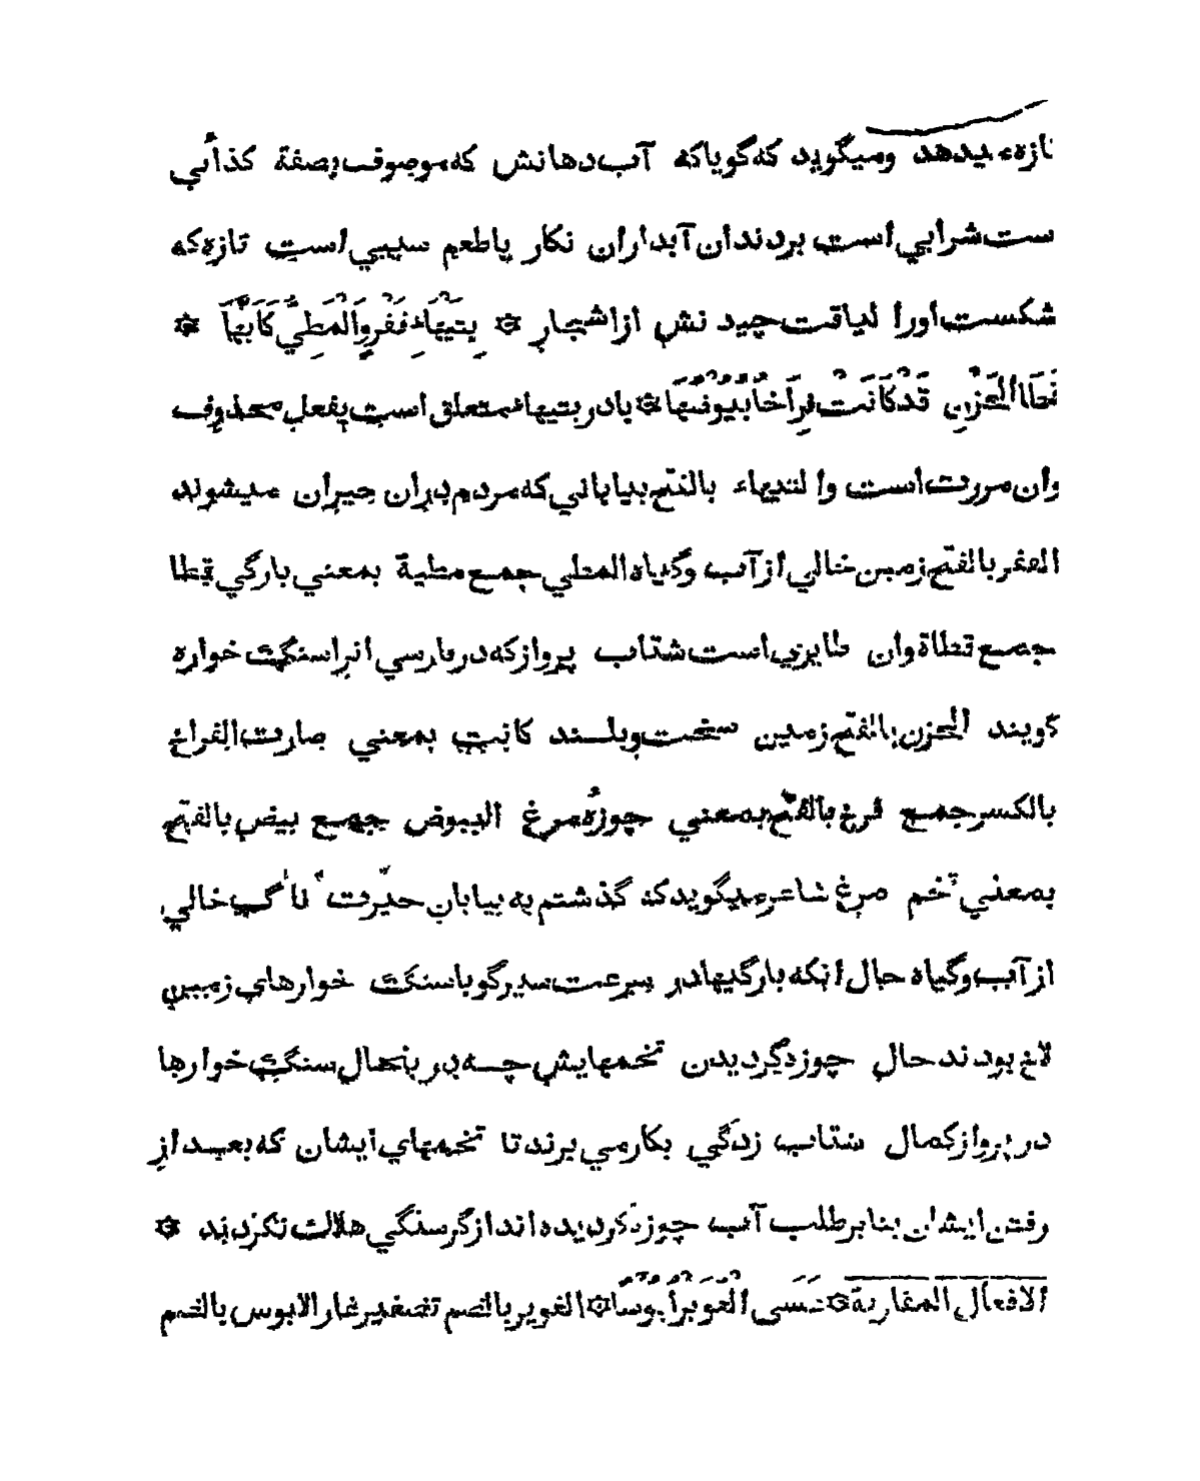 تازه میدهد ومیگوید که گویا که آب دهانش که موصوف بصفة کذائي
ست شرابي است بردندان آبداران نگار یا طعم سیبي است تازه که
شکست اورا لیاقت چیدنش از اشجار ۞ بِتَيْهَاءَ قَفْرٍ وَالْمَطِيُّ كَأَنَّهَا ۞
قَطَا الْحَزْنِ قَدْ كَانَتْ فِرَاخًا بُيُوضُهَا ۞ با در بتیهاء متعلق است بفعل محذوف
وان مررت است والتیهاء بالفتح بیاباني که مردم بران حیران میشوند
القفر بالفتح زمین خالي از آب وگیاه المطي جمع مطیة بمعني بارگي قطا
جمع قطاة وان طایري است شتاب پرواز که در پارسي انرا سنگ خواره
گویند الحزن بالفتح زمین سخت و بلند کانت بمعني صارت الفراخ
بالکسر جمع فرخ بالفتح بمعني چوزهٔ مرغ البیوض جمع بیض بالفتح
بمعني تخم مرغ شاعر میگوید که گذشتم به بیابان حیّرت ناک خالي
از آب وگیاه حال انکه بارگیها در سرعت سیر گویا سنگ خوارهاي زمین
لاخ بودند حال چوزه گردیدن تخمهایش چه درینحال سنگ خوارها
در پرواز کمال شتاب زدگي بکار مي برند تا تخمهاي ایشان که بعد از
رفتن ایشان بنا بر طلب آب چوزه گردیده اند از گرسنگي هلاک نگردند ۞
الافعال المقاربة ۞ عَسَى الْغُوَيْرُ أَبْؤُسًا ۞ الغویر بالضم تصغیر غار الابوس بالضم